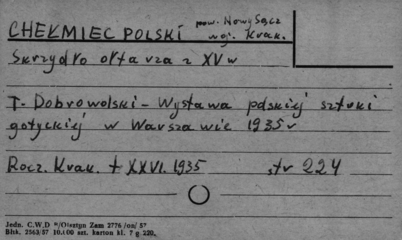 CHEŁMIEC POLSKI pow. Nowy Sącz
woj. Krak.
Skrzydło ołtarza z XV w
T. Dobrowolski - Wystawa polskiej sztuki
gotyckiej w Warszawie 1935 r
Rocz. Krak. t XXVI. 1935 str 224
Jedn. C.W.D "/Olsztyn Zam 2776 /on/ 57
Błtk. 2563/57 10.100 szt. karton kl. 7 g 220.